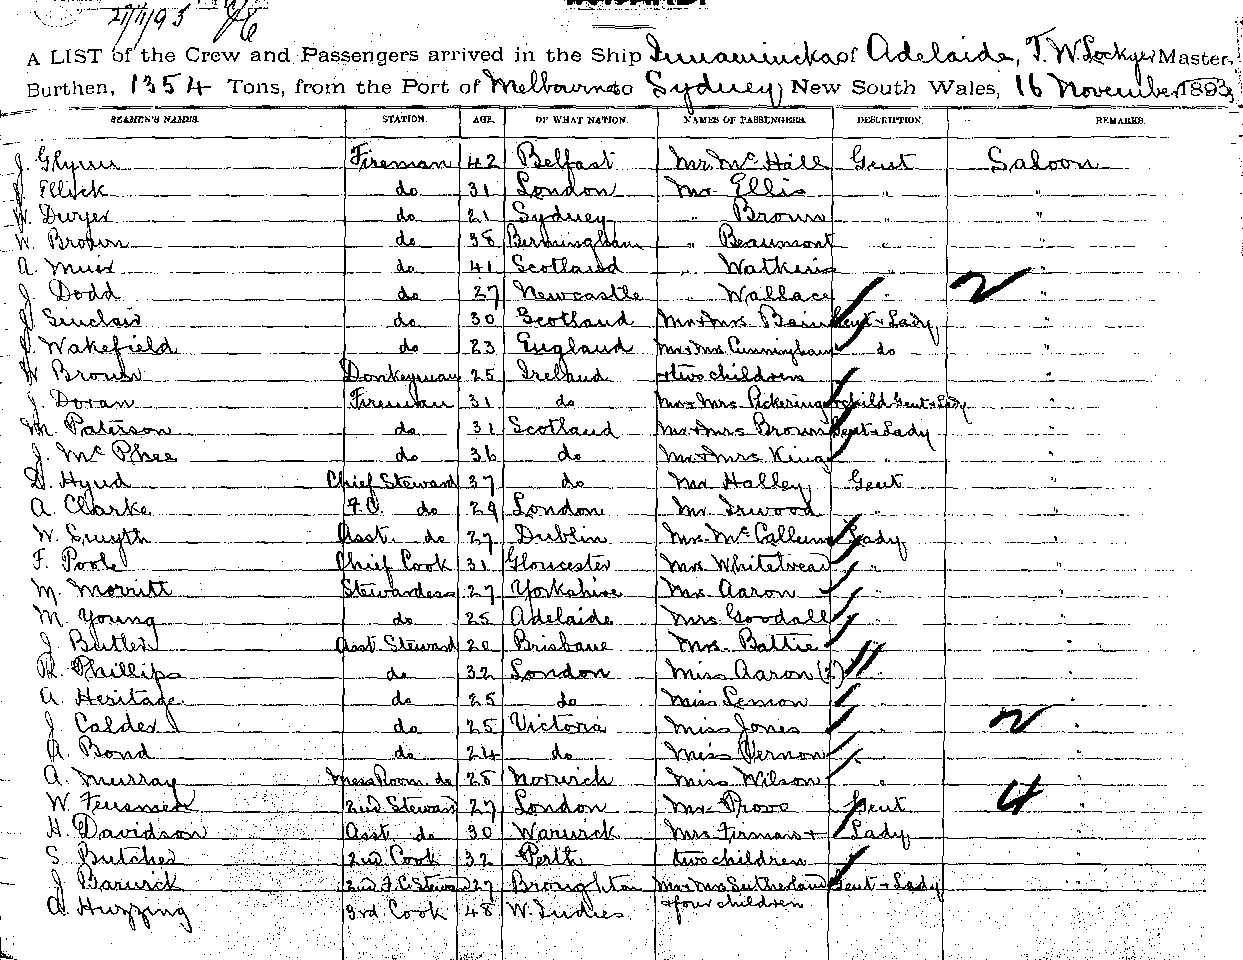 27/11/93
A LIST of the Crew and Passengers arrived in the Ship Innamincka of Adelaide, T. W. Lockyer Master,
Burthen, 1354 Tons, from the Port of Melbourne to Sydney, New South Wales, 16 November 1893
SEAMEN'S NAMES. STATION. AGE. OF WHAT NATION. NAMES OF PASSENGERS. DESCRIPTION. REMARKS.
J. Glynn Fireman 42 Belfast Mr. McHill Gent Saloon
J. Ellick do 31 London Mr Ellis " "
W. Dwyer do 21 Sydney " Brown " "
W. Brown do 38 Birmingham " Beaumont " "
A. Muir do 41 Scotland " Watkins " "
J. Dodd do 27 Newcastle " Wallace " 2 "
J. Sinclair do 30 Scotland Mr & Mrs Bain Gent & Lady "
J. Wakefield do 23 England Mr & Mrs Cunningham do "
W Brown Donkeyman 25 Ireland & two children "
J. Doran Fireman 31 do Mr & Mrs Pickering & child Gent & Lady "
M. Paterson do 31 Scotland Mr & Mrs Brown Gent & Lady "
J. McPhee do 36 do Mr & Mrs King " "
D. Hynd Chief Steward 37 do Mr Halley Gent "
A. Clarke F.C. do 29 London Mr Irwood " "
W. Smyth Asst. do 27 Dublin Mrs McCallum Lady "
F. Poole Chief Cook 31 Gloucester Mrs Whitebread " "
M. Morritt Stewardess 27 Yorkshire Mrs Aaron " "
M. Young do 25 Adelaide Mrs Goodall " "
J. Butler Asst. Steward 20 Brisbane Mrs Battie " "
R. Phillips do 32 London Miss Aaron (2) " "
A. Heritage do 25 do Miss Lemon " "
J. Calder do 25 Victoria Miss Jones " 2 "
A. Bond do 24 do Miss Vernon " "
A. Murray Mess Room do 28 Norwich Miss Wilson " "
W. 2nd Steward 27 London Mr Prove Gent 4 "
H. Davidson Asst do 30 Warwick Mrs Firman & Lady "
S. Butcher 2nd Cook 32 Perth two children "
J Barwick 2nd F.C. Steward 27 Broughton Mr & Mrs Sutherland Gent & Lady "
A. Huzzing 3rd. Cook 48 W. Indies & four children